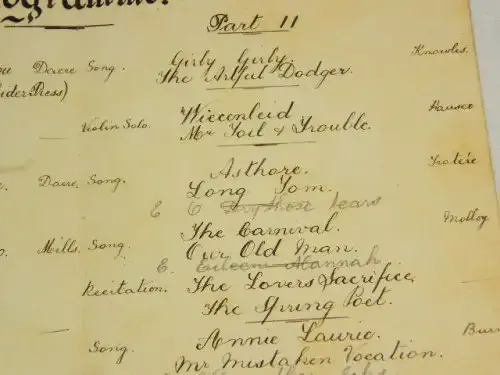 Programme.
Part II
Dacre Song. Girly Girly. Knowles.
The Artful Dodger.
Violin Solo. Wiecenleid Hauser
Mr Toil & Trouble.
Asthore. Trotère
Dacre. Song. Long Tom.
E Dry those tears
The Carnival. Molloy
Mills. Song. Our Old Man.
E. Eileen Alannah
Recitation. The Lovers Sacrifice
The Spring Poet.
Song. Annie Laurie.
Mr Mistaken Vocation.